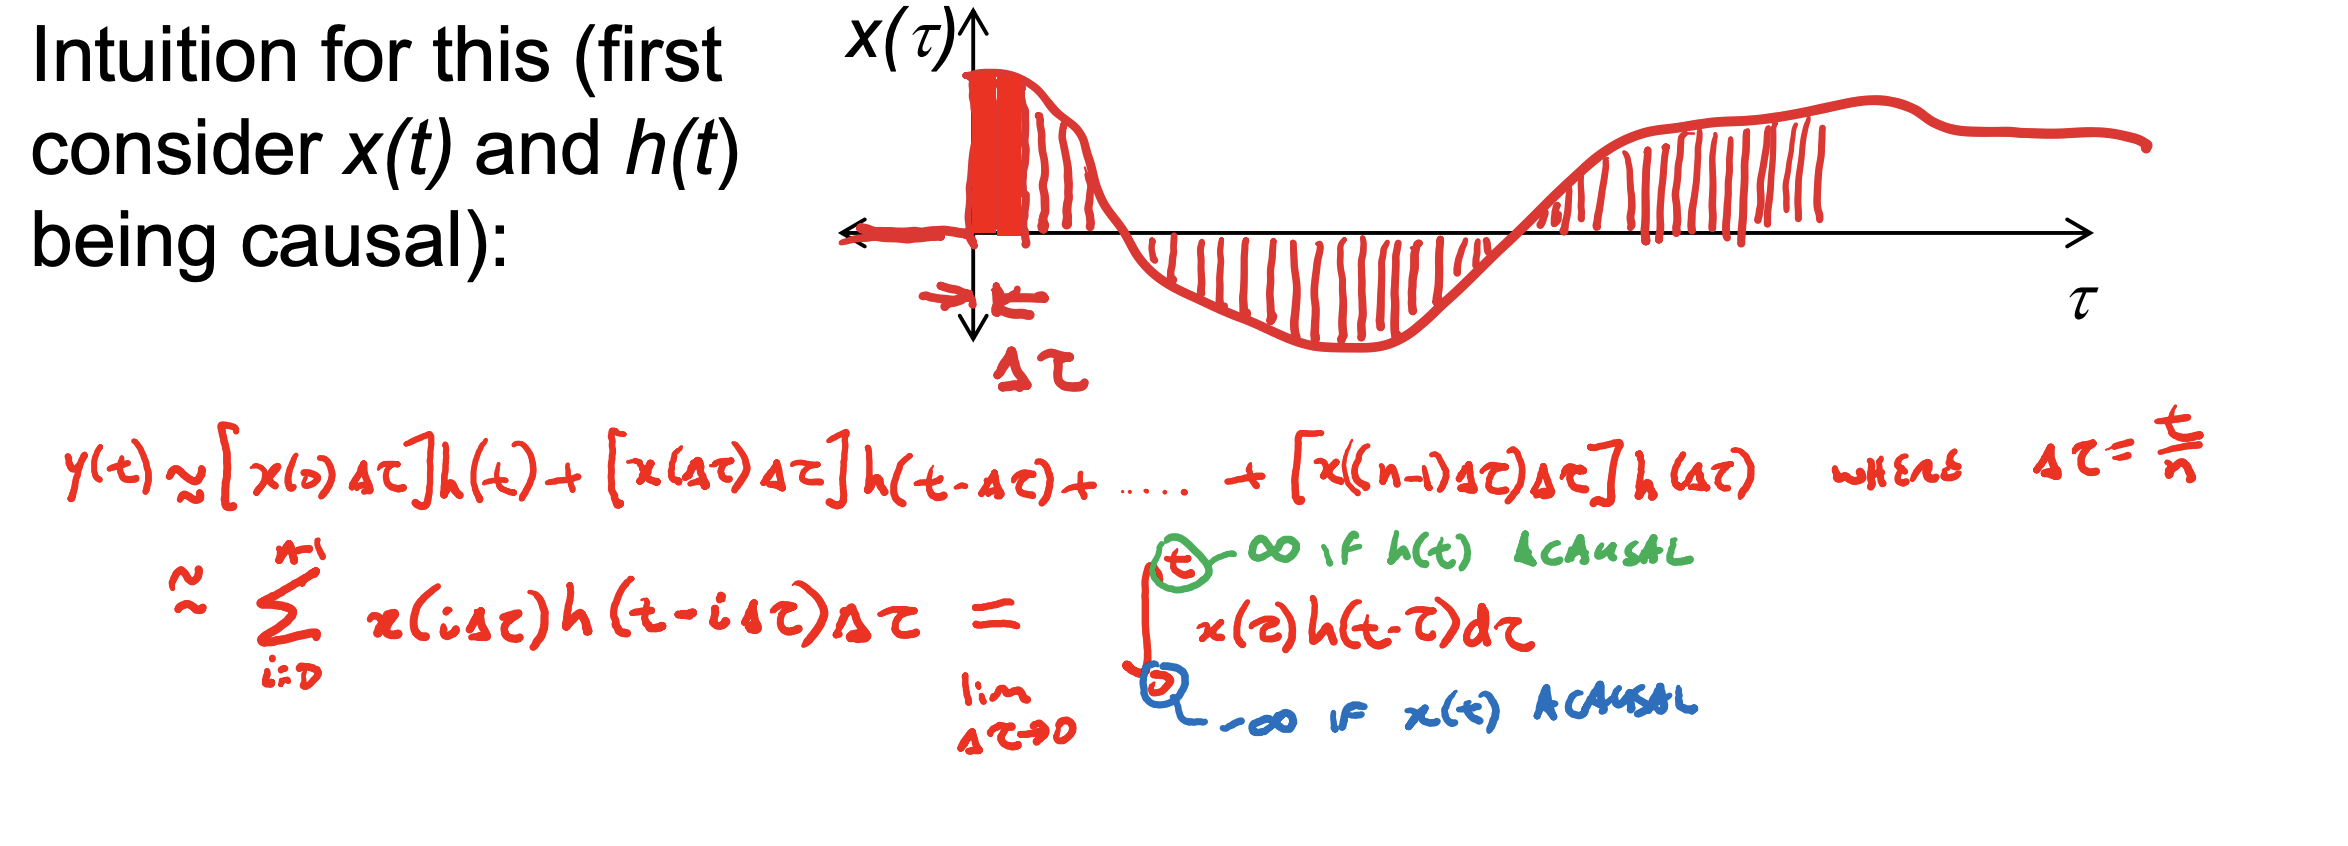 Intuition for this (first
consider x(t) and h(t)
being causal):
x(τ)
τ
Δτ
y(t) ≈ [x(0) Δτ] h(t) + [x(Δτ) Δτ] h(t-Δτ) + ..... + [x((n-1)Δτ)Δτ] h(Δτ) WHERE Δτ = t/n
≈ ∑_{i=0}^{n-1} x(iΔτ) h(t-iΔτ) Δτ = lim Δτ→0 ∫_0^t x(τ) h(t-τ) dτ
∞ IF h(t) ACAUSAL
-∞ IF x(t) ACAUSAL